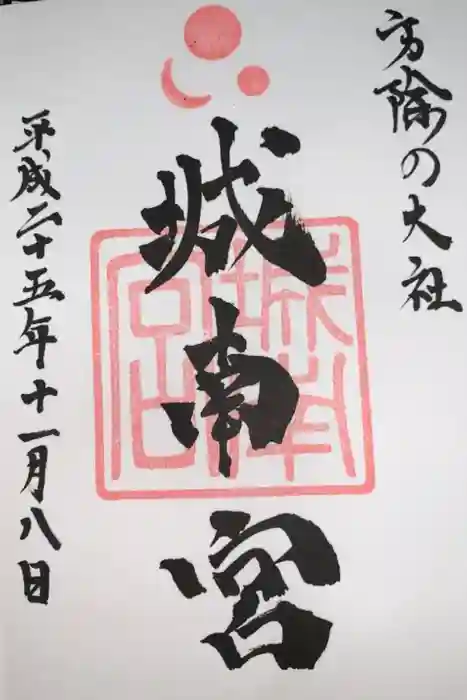 方除の大社
城南宮
平成二十五年十一月八日